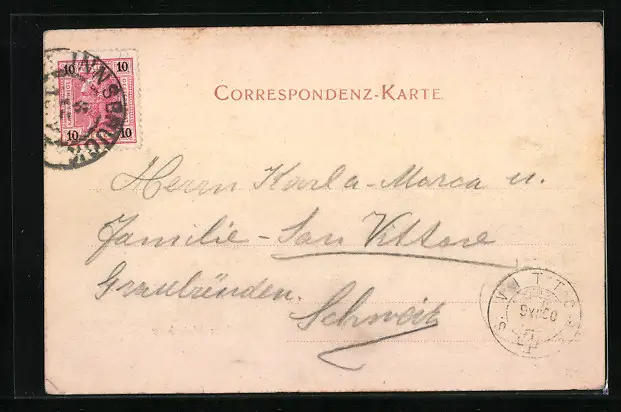 CORRESPONDENZ-KARTE.
10 10
10 10
INNSBRUCK
Herrn Karl a-Marca u.
Familie - San Vittore
Graubünden.
Schweiz
S. VITTORE